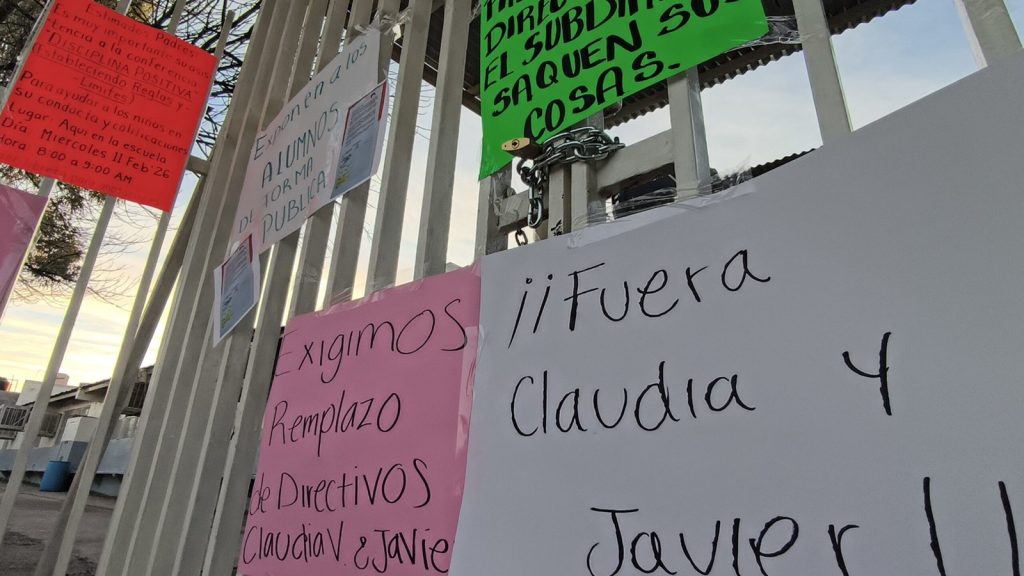 Estimados Padres:
Es muy importante su asis-
tencia a la conferencia:
"DISCIPLINA POSITIVA"
(Estableciendo Reglas y
Limites)
Para ayudar a los niños en
su conducta y calificaciones
Lugar: Aqui en la escuela
Día Miercoles 11 Feb '26
Hora 8:00 a 9:00 AM
Exponen a los
ALUMNOS
DE FORMA
PUBLICA
EL SUBDIR
SAQUEN SUS
COSAS.
Exigimos
Remplazo
de Directivos
Claudia V. & Javie
¡¡Fuera
Claudia Y
Javier !!